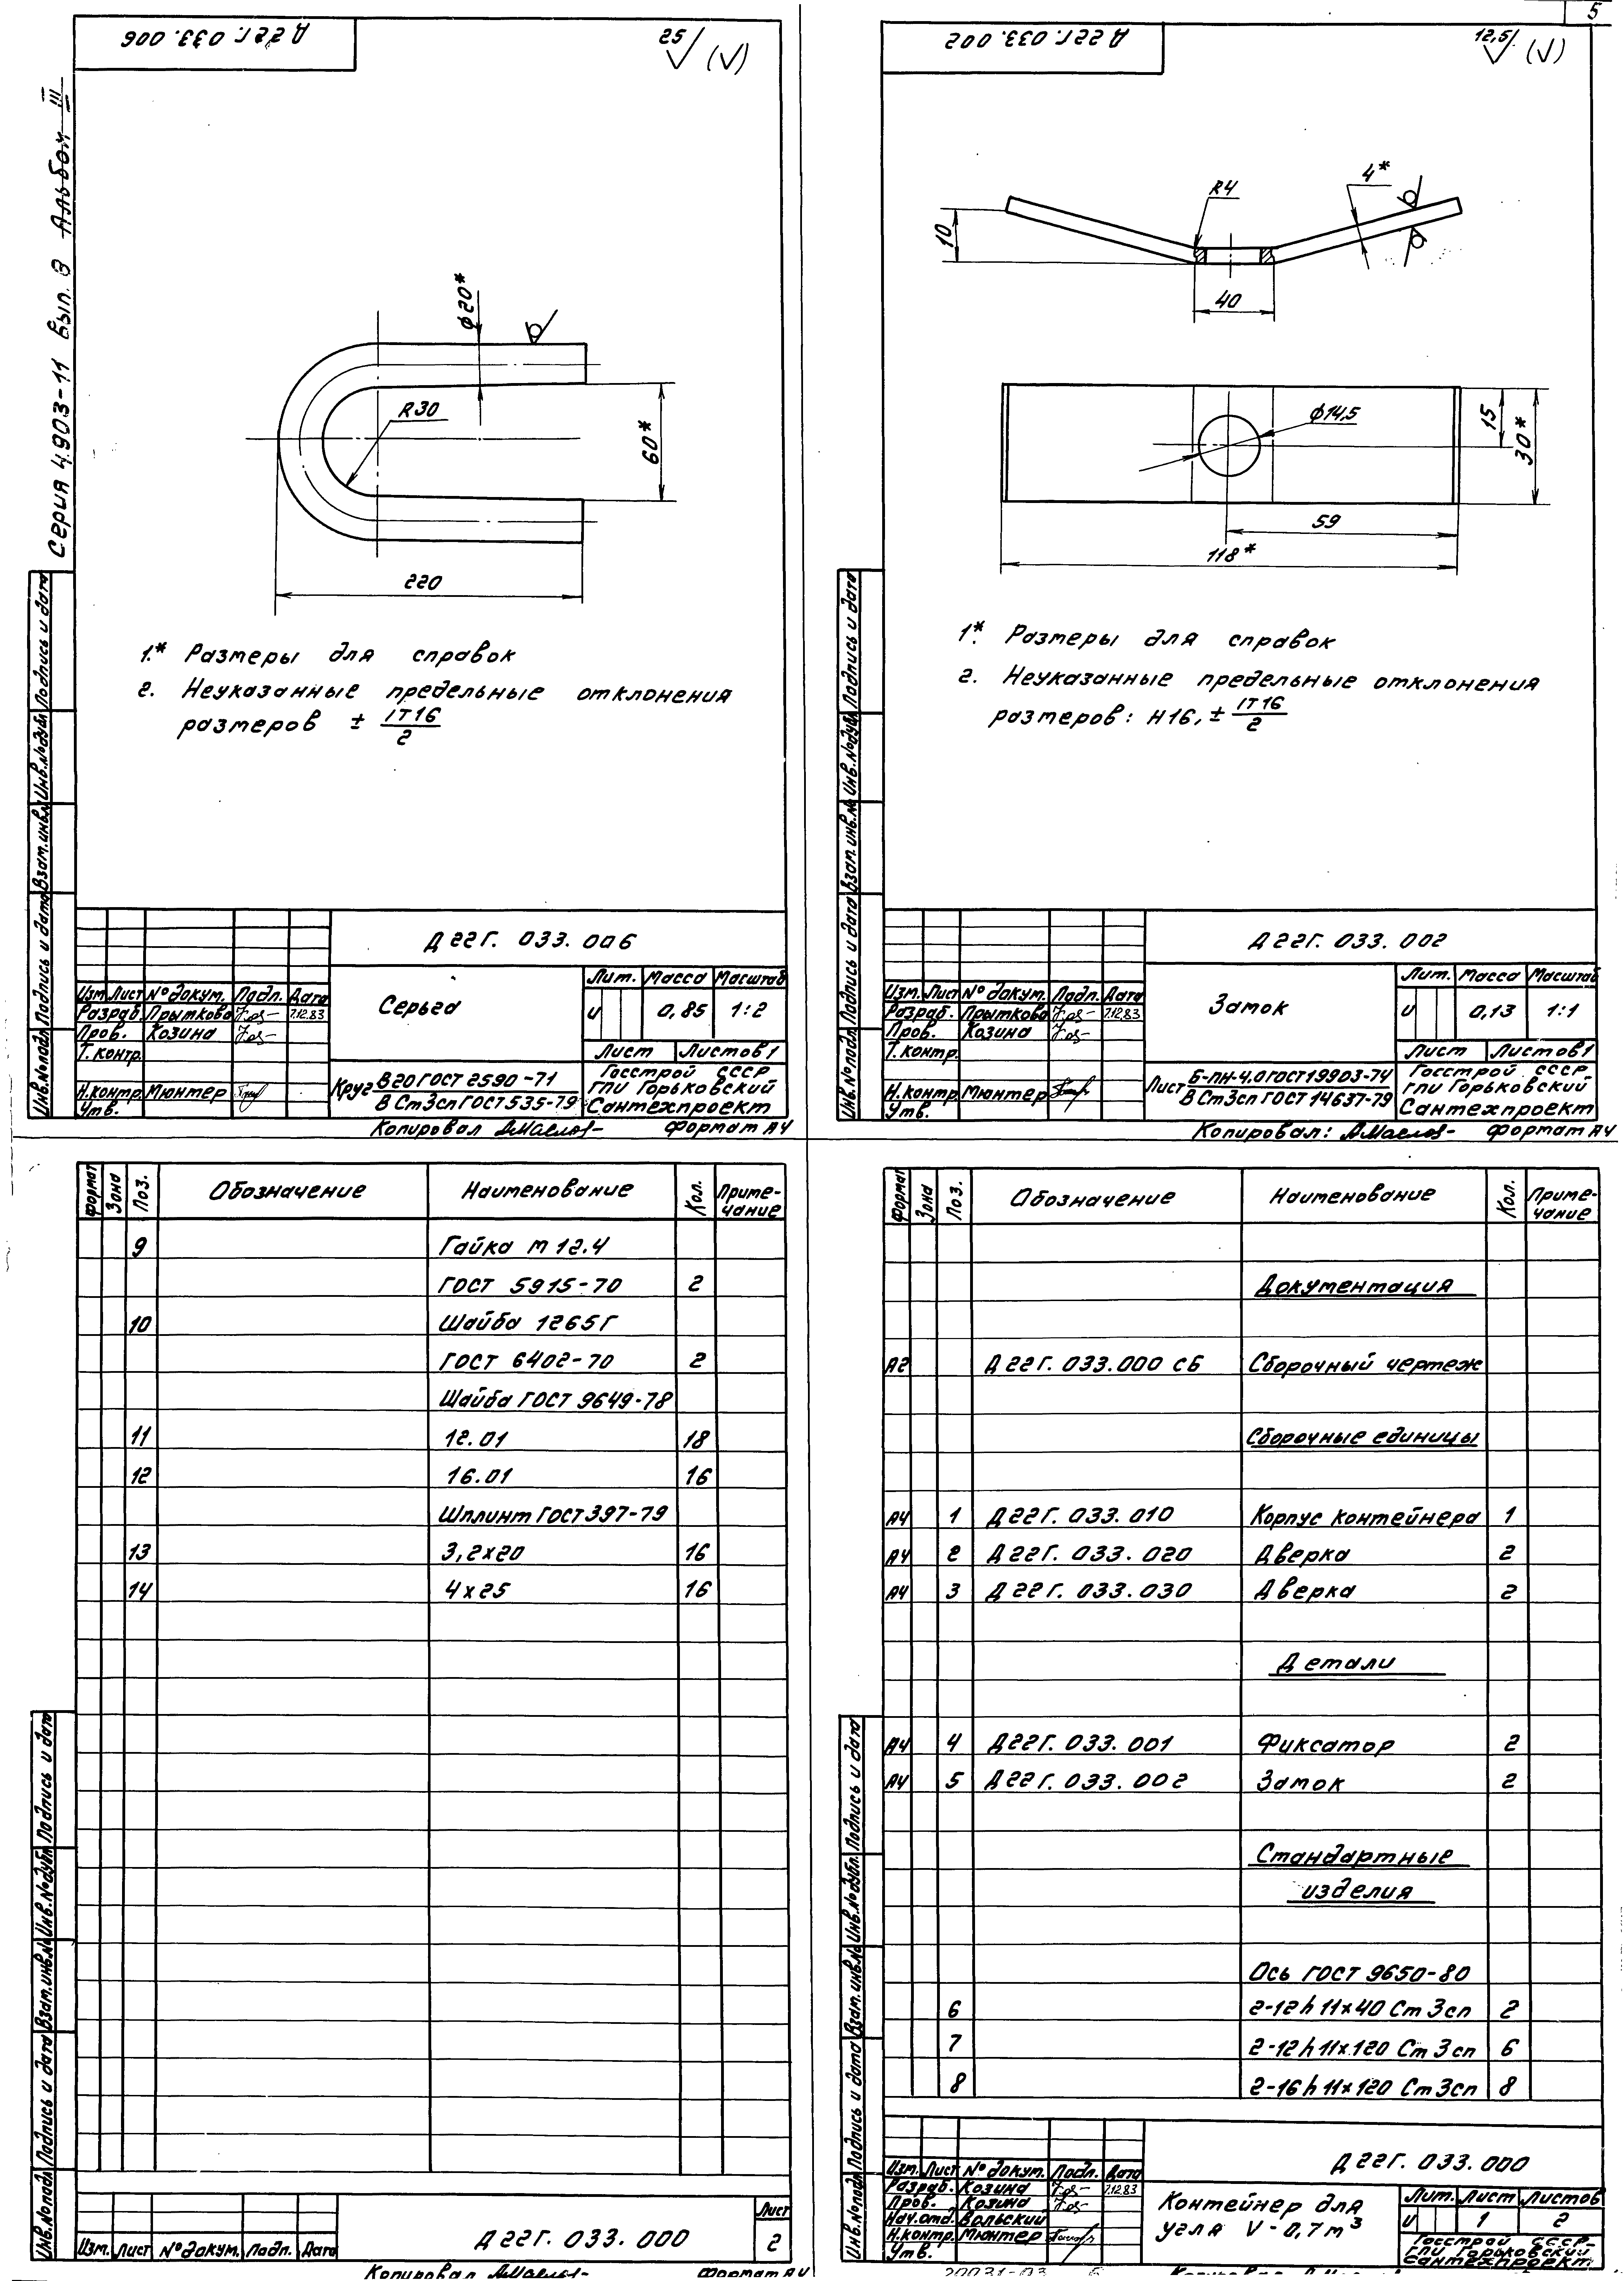 5
Серия 4.903-11 Вып. 8 Альбом III
Д22Г. 033. 006
25 (√)
ϕ20*
R30
60*
220
1.* Размеры для справок
2. Неуказанные предельные отклонения
размеров ± IT16/2
Д22Г. 033. 006
Серьга
Лит. Масса Масштаб
И 0,85 1:2
Лист Листов 1
Изм. Лист № докум. Подп. Дата
Разраб. Прыткова 7.12.83
Пров. Козина
Т. контр.
Н.контр. Мюнтер
Утв.
Круг В20 ГОСТ 2590-71
В Ст3сп ГОСТ 535-79
Госстрой СССР
ГПИ Горьковский
Сантехпроект
Копировал Формат А4
Инв.№подл. Подпись и дата Взам.инв.№ Инв.№дубл. Подпись и дата
Д22Г. 033. 002
12,5 (√)
R4
4*
10
40
ϕ14,5
15
30*
59
118*
1.* Размеры для справок
2. Неуказанные предельные отклонения
размеров: Н16, ± IT16/2
Д22Г. 033. 002
Замок
Лит. Масса Масштаб
И 0,13 1:1
Лист Листов 1
Изм. Лист № докум. Подп. Дата
Разраб. Прыткова 7.12.83
Пров. Козина
Т. контр.
Н.контр. Мюнтер
Утв.
Лист Б-ПН-4,0 ГОСТ 19903-74
В Ст3сп ГОСТ 14637-79
Госстрой СССР
ГПИ Горьковский
Сантехпроект
Копировал: Формат А4
Инв.№подл. Подпись и дата Взам.инв.№ Инв.№дубл. Подпись и дата
Формат Зона Поз. Обозначение Наименование Кол. Примечание
9 Гайка М 12.4
ГОСТ 5915-70 2
10 Шайба 12 65Г
ГОСТ 6402-70 2
Шайба ГОСТ 9649-78
11 12.01 18
12 16.01 16
Шплинт ГОСТ 397-79
13 3,2х20 16
14 4х25 16
Инв.№подл. Подпись и дата Взам.инв.№ Инв.№дубл. Подпись и дата
Изм. Лист № докум. Подп. Дата
Д22Г. 033. 000
Лист
2
Копировал Формат А4
Формат Зона Поз. Обозначение Наименование Кол. Примечание
Документация
А2 Д22Г. 033.000 СБ Сборочный чертеж
Сборочные единицы
А4 1 Д22Г. 033. 010 Корпус контейнера 1
А4 2 Д22Г. 033. 020 Дверка 2
А4 3 Д22Г. 033.030 Дверка 2
Детали
А4 4 Д22Г. 033. 001 Фиксатор 2
А4 5 Д22Г. 033. 002 Замок 2
Стандартные
изделия
Ось ГОСТ 9650-80
6 2-12 h 11х40 Ст 3сп 2
7 2-12 h 11х120 Ст 3сп 6
8 2-16 h 11х120 Ст 3сп 8
Инв.№подл. Подпись и дата Взам.инв.№ Инв.№дубл. Подпись и дата
Д22Г. 033. 000
Изм. Лист № докум. Подп. Дата
Разраб. Козина 7.12.83
Пров. Козина
Нач.отд. Вольский
Н.контр. Мюнтер
Утв.
Контейнер для
угля V-0,7м³
Лит. Лист Листов
И 1 2
Госстрой СССР
ГПИ Горьковский
Сантехпроект
20031-03 6